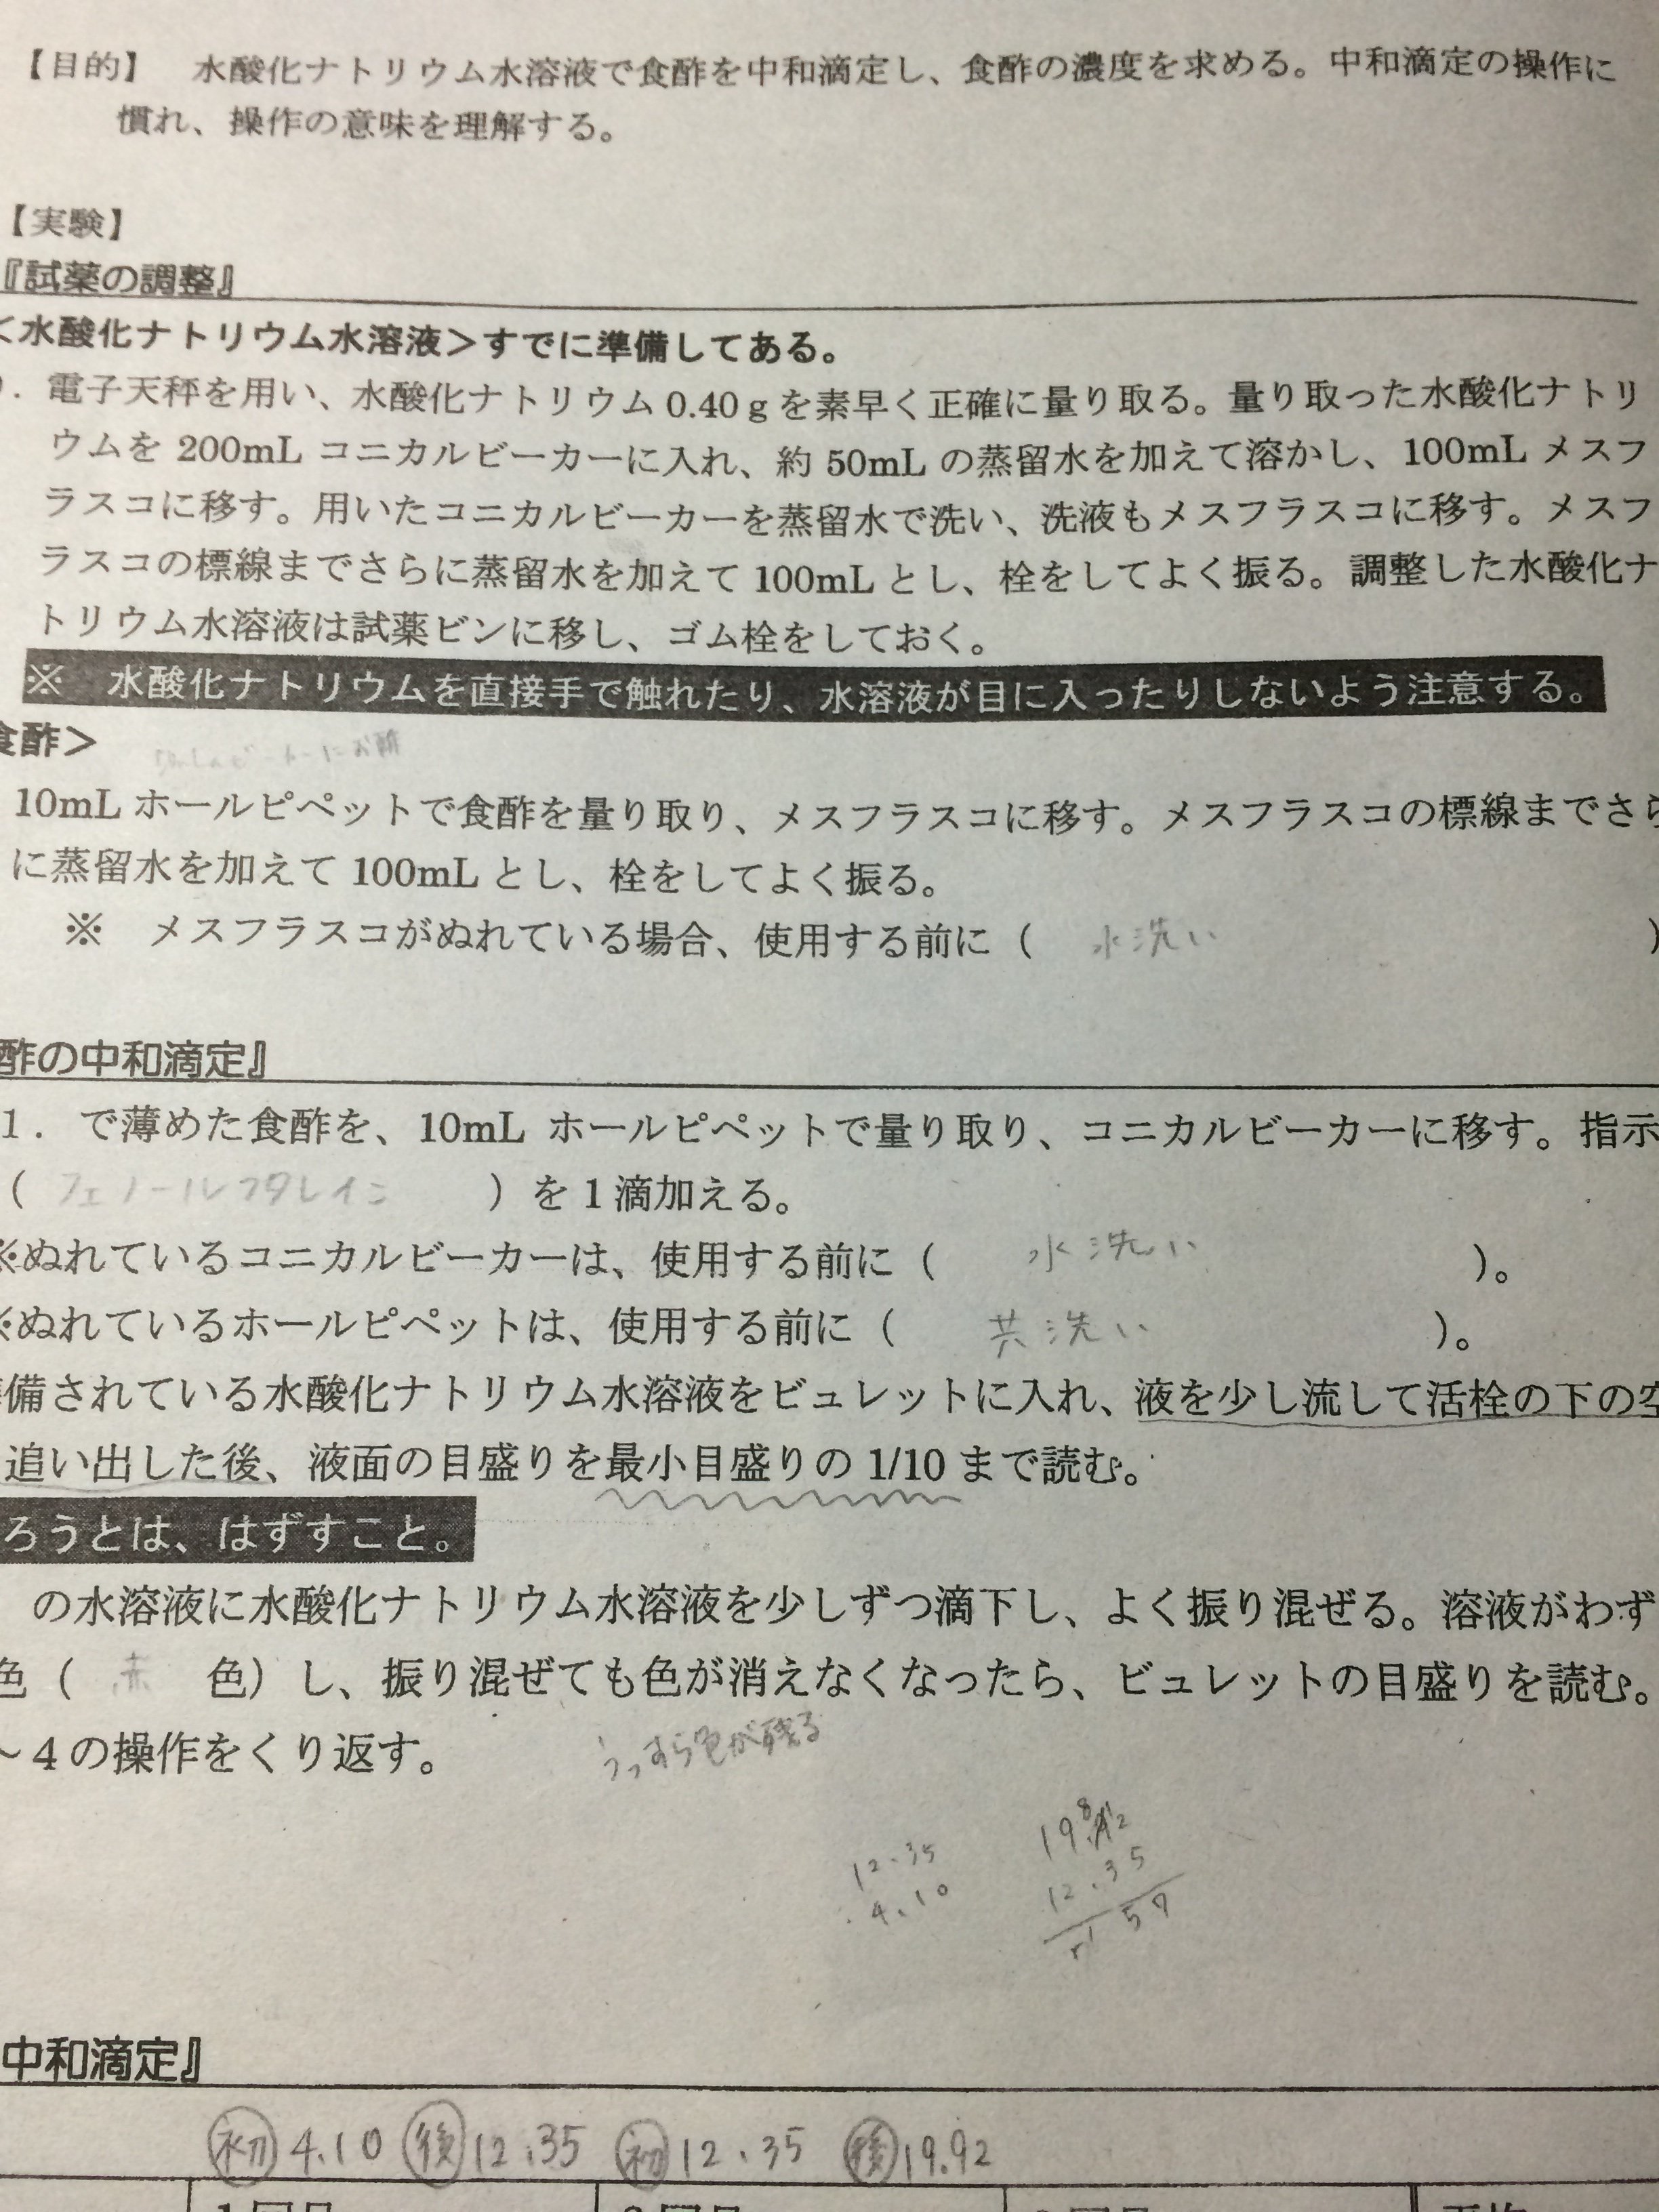 【目的】 水酸化ナトリウム水溶液で食酢を中和滴定し、食酢の濃度を求める。中和滴定の操作に
慣れ、操作の意味を理解する。
【実験】
『試薬の調整』
<水酸化ナトリウム水溶液>すでに準備してある。
. 電子天秤を用い、水酸化ナトリウム0.40gを素早く正確に量り取る。量り取った水酸化ナトリ
ウムを 200mL コニカルビーカーに入れ、約 50mL の蒸留水を加えて溶かし、100mL メスフ
ラスコに移す。用いたコニカルビーカーを蒸留水で洗い、洗液もメスフラスコに移す。メスフ
ラスコの標線までさらに蒸留水を加えて 100mL とし、栓をしてよく振る。調整した水酸化ナ
トリウム水溶液は試薬ビンに移し、ゴム栓をしておく。
※ 水酸化ナトリウムを直接手で触れたり、水溶液が目に入ったりしないよう注意する。
食酢>
50mLのビーカーにお酢
10mL ホールピペットで食酢を量り取り、メスフラスコに移す。メスフラスコの標線までさら
に蒸留水を加えて 100mL とし、栓をしてよく振る。
※ メスフラスコがぬれている場合、使用する前に ( 水洗い )
酢の中和滴定』
1. で薄めた食酢を、10mL ホールピペットで量り取り、コニカルビーカーに移す。指示
( フェノールフタレイン ) を1滴加える。
※ぬれているコニカルビーカーは、使用する前に ( 水洗い )。
※ぬれているホールピペットは、使用する前に ( 共洗い )。
備されている水酸化ナトリウム水溶液をビュレットに入れ、液を少し流して活栓の下の空
追い出した後、液面の目盛りを最小目盛りの 1/10 まで読む。
ろうとは、はずすこと。
の水溶液に水酸化ナトリウム水溶液を少しずつ滴下し、よく振り混ぜる。溶液がわず
色 ( 赤 色) し、振り混ぜても色が消えなくなったら、ビュレットの目盛りを読む。
～4の操作をくり返す。
うっすら色が残る
12.35
4.10
12.35
57
中和滴定』
初 4.10 後 12.35 初 12.35 後 19.92